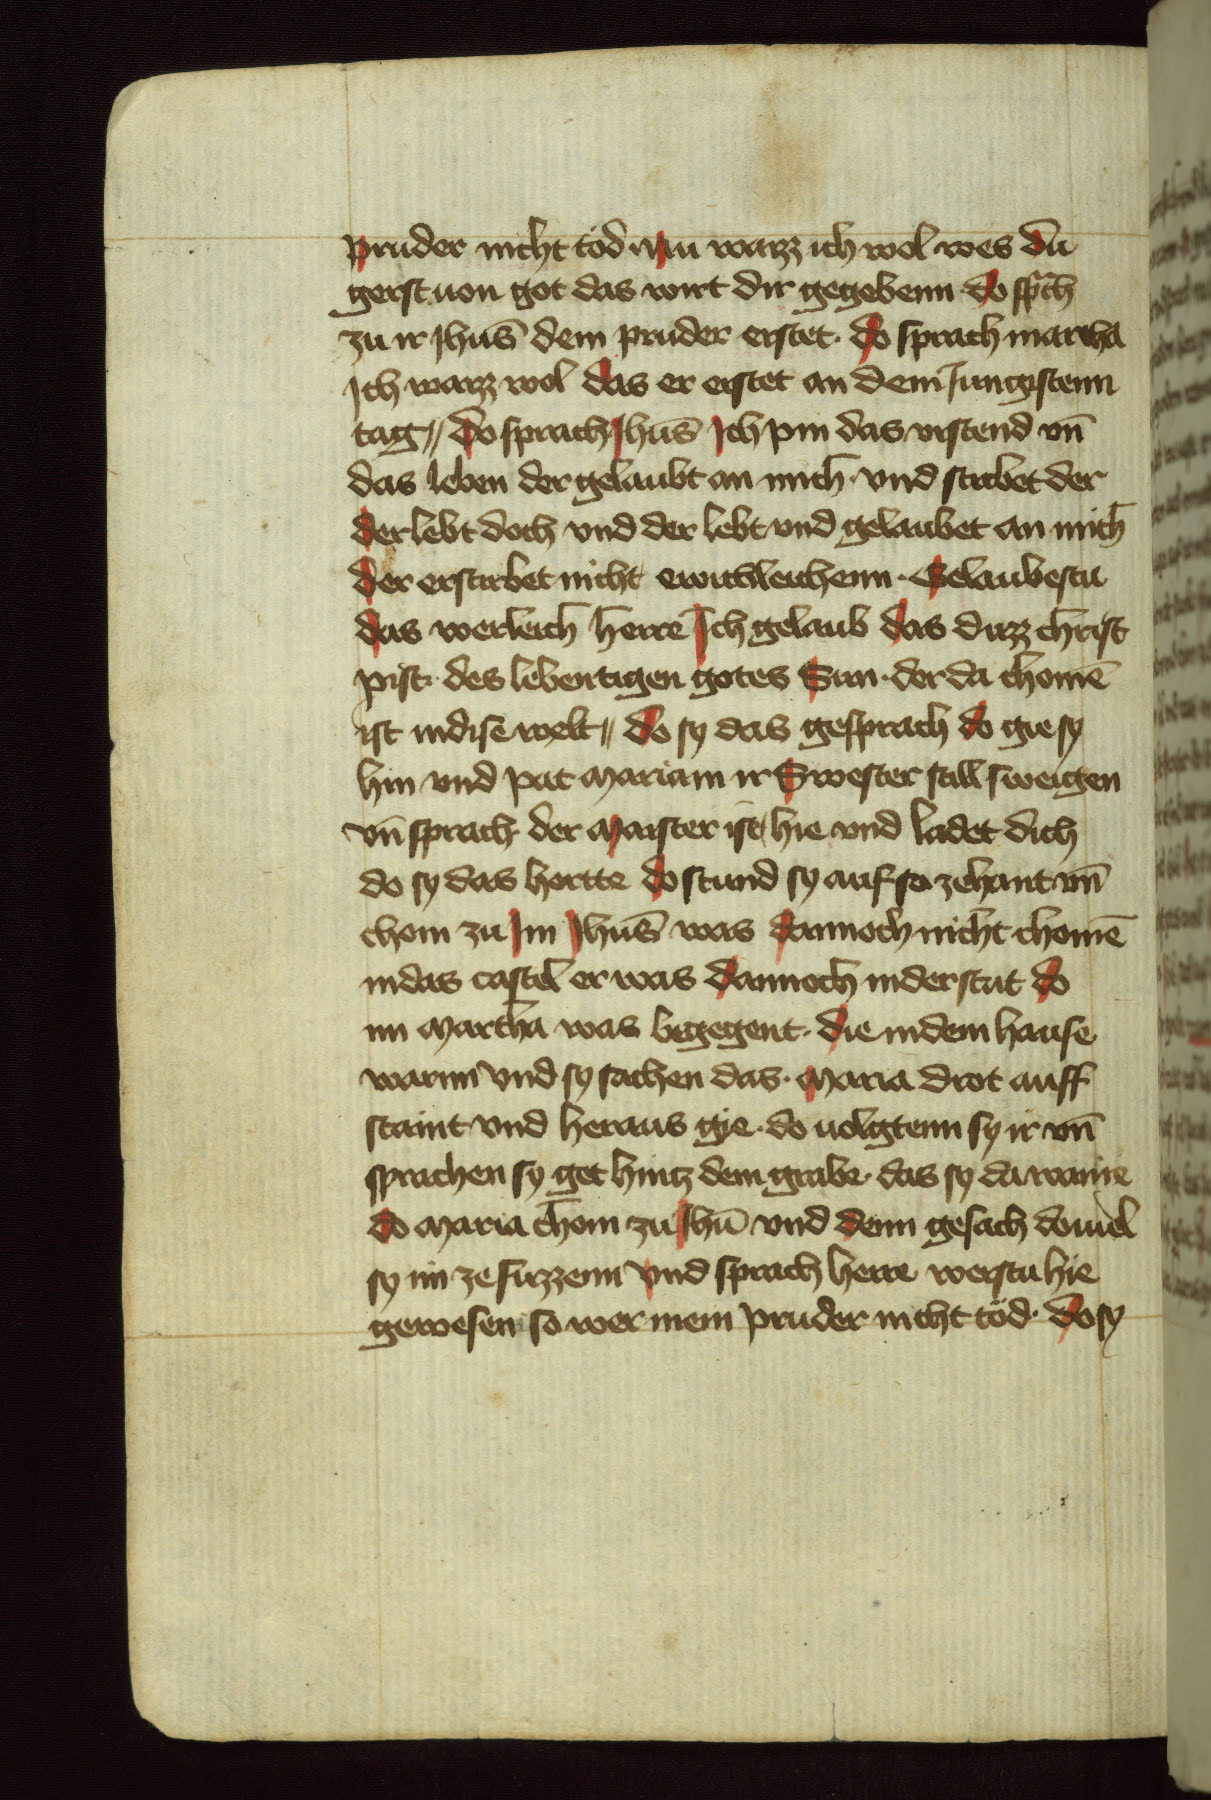 pruder nicht tod · Nu waizz ich wol wes du
gerst uon got das wirt dir gegebenn do sprach
zu ir Jhus̄ dein pruder erstet · do sprach martha
Jch waizz wol das er erstet an dem Jungistenn
tag // do sprach Jhus̄ Jch pin das vrstend vn̄
das leben der gelaubt an mich · vnd stirbet der
der lebt doch vnd der lebt vnd gelaubet an mich
der erstirbet nicht ewichleichenn · Gelaubestu
das werleich herre Jch gelaub das duzz christ
pist · des lebentigen gotes Sun · der da chomē
ist in dise welt // do sy das gesprach do gie sy
hin vnd pat Mariam ir Swester still sweigen
vn̄ sprach der Maister ist hie vnd ladet dich
do sy das hortte do stund sy auf so zehant vn̄
chom zu Jm Jhus̄ was dannoch nicht chomē
in das castel er was dannoch in der stat do
im Martha was begegent · die in dem hause
warnn vnd sy sachen das · Maria drot auff
staint vnd heraus gie · do uolgtenn sy ir vn̄
sprachen sy get hintz dem grabe · das sy da waine
do Maria chom zu Jhū vnd denn gesach do uiel
sy im ze fuzzenn vnd sprach herre werstu hie
gewesen so wer mein pruder nicht tod · do sy